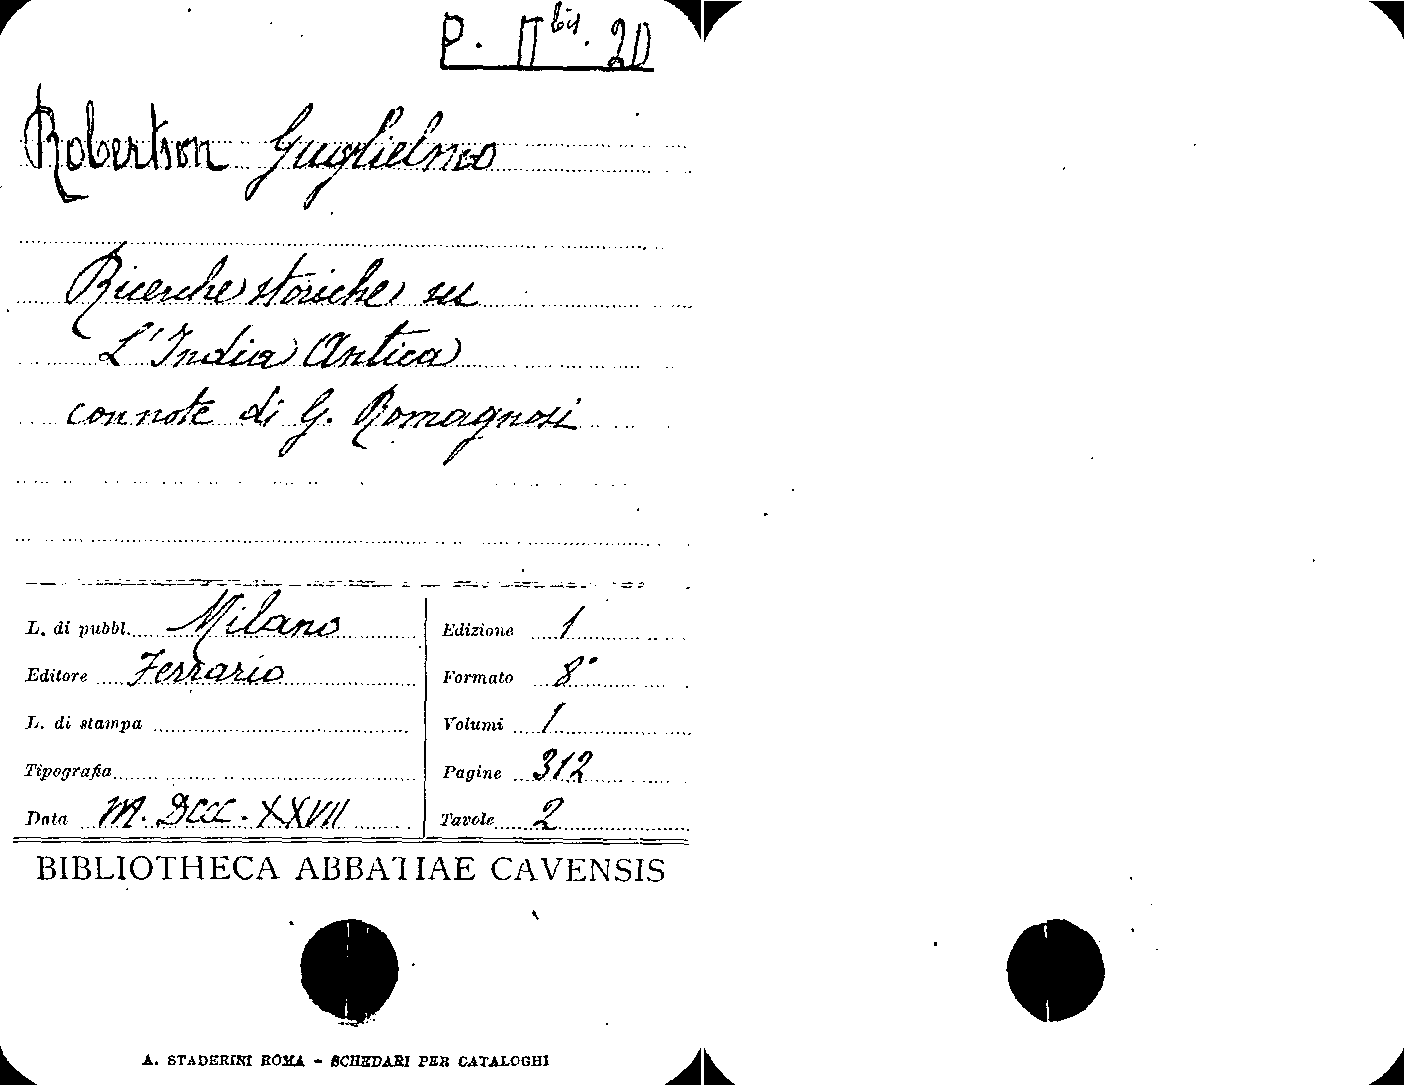 P. II bis. 20
Robertson Guglielmo
Ricerche storiche su
L'India Antica
con note di G. Romagnosi
L. di pubbl. Milano
Editore Ferrario
L. di stampa
Tipografia
Data M. DCCC. XXVII
Edizione 1
Formato 8°
Volumi 1
Pagine 312
Tavole 2
BIBLIOTHECA ABBATIAE CAVENSIS
A. STADERINI ROMA - SCHEDARI PER CATALOGHI